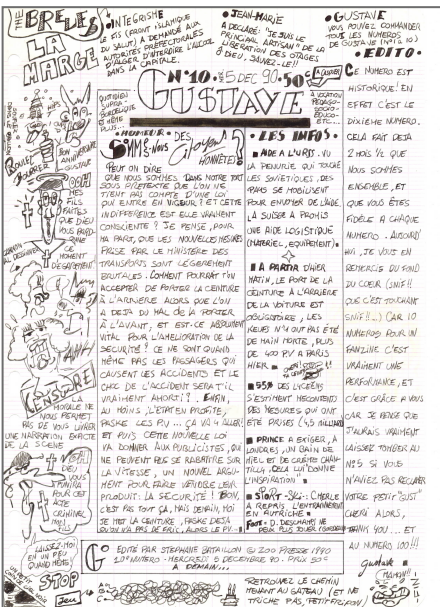 THE BRELES
LA MARGE
INTEGRISME
LE FIS (FRONT ISLAMIQUE
DU SALUT) A DEMANDÉ AUX
AUTORITÉS PRÉFECTORALES
D'ALGER D'INTERDIRE L'ALCOOL
DANS LA CAPITALE.
JEAN-MARIE
A DÉCLARÉ: "JE SUIS LE
PRINCIPAL ARTISAN" DE LA
LIBERATION DES OTAGES
Ô DIEU, SAUVEZ-LE!!
GUSTAVE
VOUS POUVEZ COMMANDER
TOUS LES NUMEROS
DE GUSTAVE (N°1 à 10)
QUOTIDIEN
MÊME
PLUS...
N°10. 5 DEC 90. 50c
GUSTAVE
A VOCATION
PEDAGO-
EDUCO-
ETC...
HUMEUR
SOMMES-NOUS DES Citoyens HONNÊTES?
PEUT ON DIRE
QUE NOUS SOMMES DANS NOTRE TORT
SOUS PRETEXTE QUE L'ON NE
TIENT PAS COMPTE D'UNE LOI
QUI ENTRE EN VIGEUR? ET CETTE
INDIFFERENCE EST ELLE VRAIMENT
CONSCIENTE? JE PENSE, POUR
MA PART, QUE LES NOUVELLES MESURES
PRISE PAR LE MINISTÈRE DES
TRANSPORTS SONT LÉGEREMENT
BRUTALES. COMMENT POURRAIT T'ON
ACCEPTER DE PORTER LA CEINTURE
À L'ARRIÈRE ALORS QUE L'ON
A DEJÀ DU MAL DE LA PORTER
À L'AVANT, ET EST-CE ABSOLUMENT
VITAL POUR L'AMELIORATION DE LA
SECURITÉ? CE NE SONT QUAND
MÊME PAS LES PASSAGERS QUI
CAUSENT LES ACCIDENTS ET LE
CHOC DE L'ACCIDENT SERA T'IL
VRAIMENT AMORTI?. ENFIN,
AU MOINS, L'ETAT EN PROFITE,
PASKE LES P.V... ÇA VA 4 ALLER!
ET PUIS CETTE NOUVELLE LOI
VA DONNER AUX PUBLICISTES, QUI
NE PEUVENT PAS SE RABATTRE SUR
LA VITESSE, UN NOUVEL ARGU-
MENT POUR FAIRE VENDRE LEUR
PRODUIT: LA SECURITÉ! BON,
C'EST PAS TOUT ÇA, MAIS DEMAIN, MOI
JE MET LA CEINTURE, PASKE DEJA
QU'ON VA PAS DE FRIC, ALORS LE PV...
LES INFOS
AIDE A L'URSS. VU
LA PENURIE QUI TOUCHE
LES SOVIÉTIQUES, DES
PAYS SE MOBILISENT
POUR ENVOYER DE L'AIDE.
LA SUISSE A PROMIS
UNE AIDE LOGISTIQUE
(MATERIEL, EQUIPEMENT).
A PARTIR D'HIER
MATIN, LE PORT DE LA
CEINTURE À L'ARRIÈRE
DE LA VOITURE EST
OBLIGATOIRE, LES
N'Y ONT PAS ÉTÉ
DE MAIN MORTE, PLUS
DE 400 PV A PARIS
HIER
55% DES LYCÉENS
S'ESTIMENT MECONTENTS
DES MESURES QUI ONT
ETE PRISES (4,5 MILLIARD
PRINCE A EXIGER, À
LONDRES, UN BAIN DE
MIEL ET DE CRÊME CHAN-
TILLY. CELA LUI DONNE
L'INSPIRATION"
SPORT - SKI: 
A REPRIS L'ENTRAÎNEMENT
EN AUTRICHE
FOOT. D. DESCHAMPS NE
PEUX PLUS JOUER
EDITO
CE NUMERO EST
HISTORIQUE! EN
EFFET C'EST LE
DIXIEME NUMERO.
CELA FAIT DEJA
2 MOIS 1/2 QUE
NOUS SOMMES
ENSEMBLE, ET
QUE VOUS ÊTES
FIDÈLE A CHAQUE
NUMERO. AUJOURD'
HUI, JE VOUS EN
REMERCIE DU FOND
DU COEUR (SNIF!!
QUE C'EST TOUCHANT
SNIF!!..) CAR 10
NUMEROS POUR UN
FANZINE C'EST
VRAIMENT UNE
PERFORMANCE, ET
C'EST GRÂCE A VOUS
CAR JE PENSE QUE
J'AURAIS VRAIMENT
LAISSER TOMBER AU
N°5 SI VOUS
N'AVIEZ PAS RECLAMER
VOTRE PETIT "GUST"
CHERI ALORS,
THANK YOU... ET
AU NUMERO 100!!!
gustave
HIPS
BON
ANNIVERSAIRE
GUSTAVE
OOH
MES
FILS
FAITES
QUE DIEU
VOUS PARD-
ONNE
CENSURE
LA
MORALE NE
NOUS PERMET
PAS DE VOUS LIVRER
UNE NARRATION EXPLICITE
DE LA SCENE
DIEU
VOUS
PUNIRA
POUR CET
ACTE
CRIMINEL
LAISSEZ-MOI
UN PEU
QUAND MÊME
STOP
Jeu
EDITÉ PAR STEPHANE BATAILLON © ZOO PRESSE 1990
10e NUMERO - MERCREDI 5 DECEMBRE 90 - PRIX 50c
A DEMAIN...
RETROUVEZ LE CHEMIN
MENANT AU GATEAU (ET NE
TRICHE PAS, PETIT FRIPON)